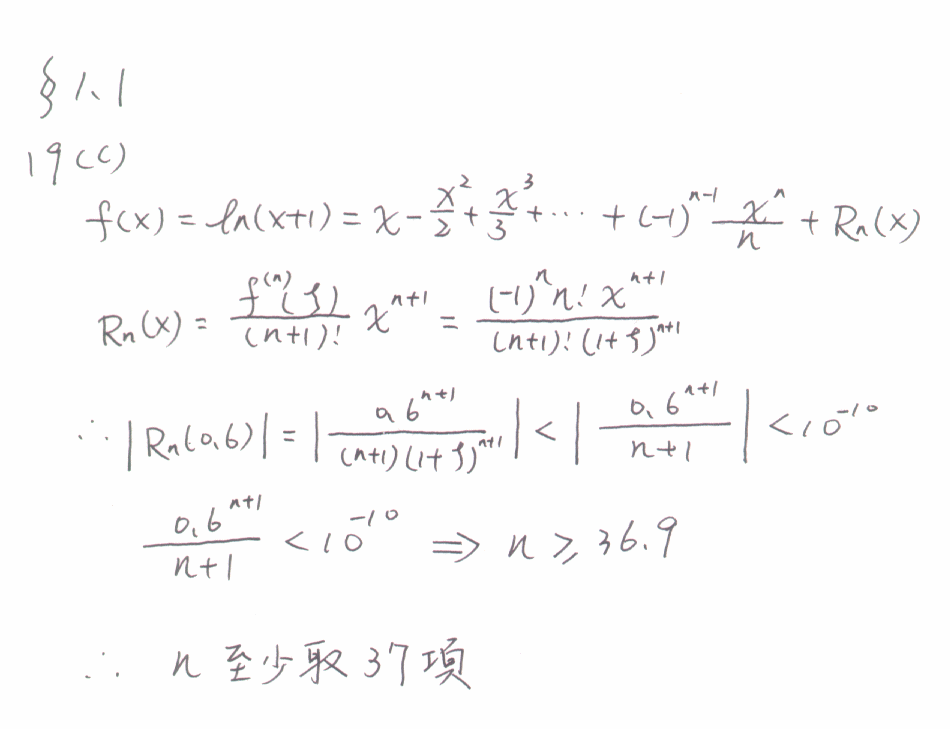 §1.1
19(c)
f(x) = ln(x+1) = x - x²/2 + x³/3 + ⋯ + (-1)^(n-1) x^n/n + Rn(x)
Rn(x) = f^(n)(ξ)/(n+1)! x^(n+1) = (-1)^n n! x^(n+1)/((n+1)! (1+ξ)^(n+1))
∴ |Rn(0.6)| = |0.6^(n+1)/((n+1)(1+ξ)^(n+1))| < |0.6^(n+1)/(n+1)| < 10^(-10)
0.6^(n+1)/(n+1) < 10^(-10) ⇒ n ≥ 36.9
∴ n 至少取 37 項